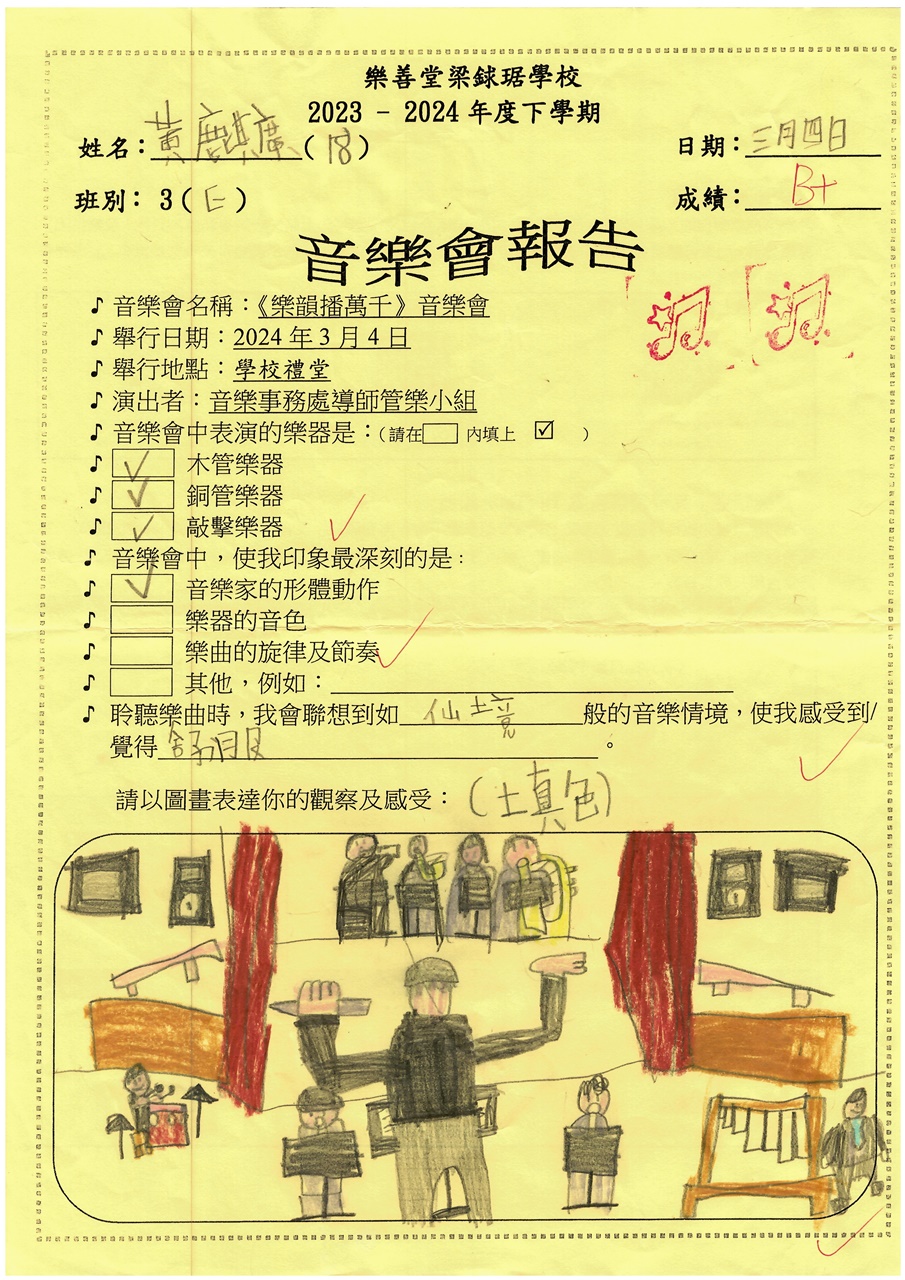 樂善堂梁銶琚學校
2023 - 2024 年度下學期
姓名：黃麒廣(18) 日期：三月四日
班別：3(E) 成績：B+
音樂會報告
♪ 音樂會名稱：《樂韻播萬千》音樂會
♪ 舉行日期：2024 年 3 月 4 日
♪ 舉行地點：學校禮堂
♪ 演出者：音樂事務處導師管樂小組
♪ 音樂會中表演的樂器是：(請在□ 內填上 ☑ )
♪ ✓ 木管樂器
♪ ✓ 銅管樂器
♪ ✓ 敲擊樂器
♪ 音樂會中，使我印象最深刻的是：
♪ ✓ 音樂家的形體動作
♪ □ 樂器的音色
♪ □ 樂曲的旋律及節奏
♪ □ 其他，例如：
♪ 聆聽樂曲時，我會聯想到如仙境般的音樂情境，使我感受到/
覺得舒服。
請以圖畫表達你的觀察及感受： (填色)